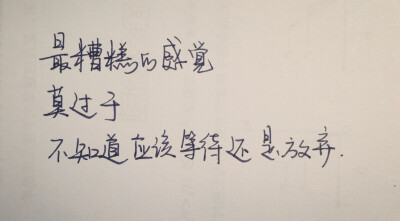 最糟糕的感觉
莫过于
不知道应该等待还是放弃.